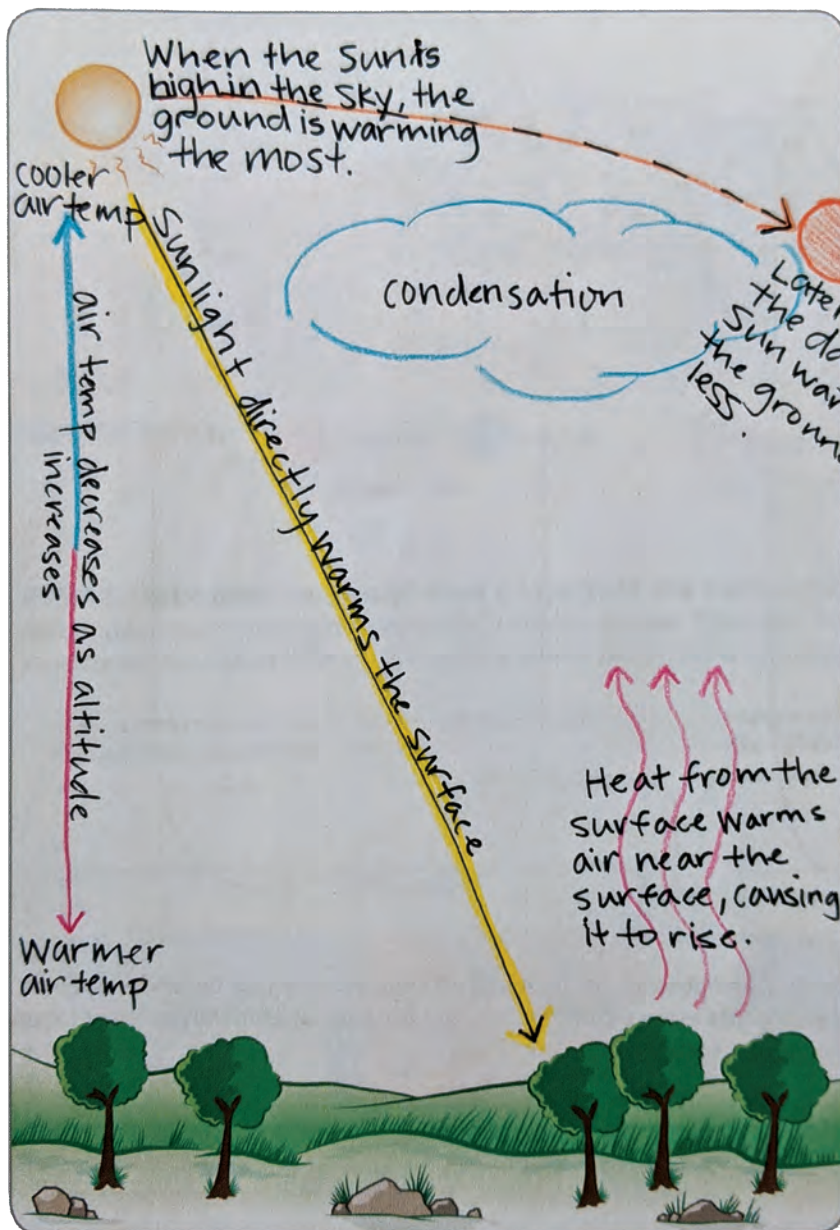 When the Sun is
high in the sky, the
ground is warming
the most.
cooler
air temp
air temp decreases as altitude
increases
Warmer
air temp
Sunlight directly warms the surface
condensation
Late
the
Sun
the
less.
Heat from the
surface warms
air near the
surface, causing
it to rise.